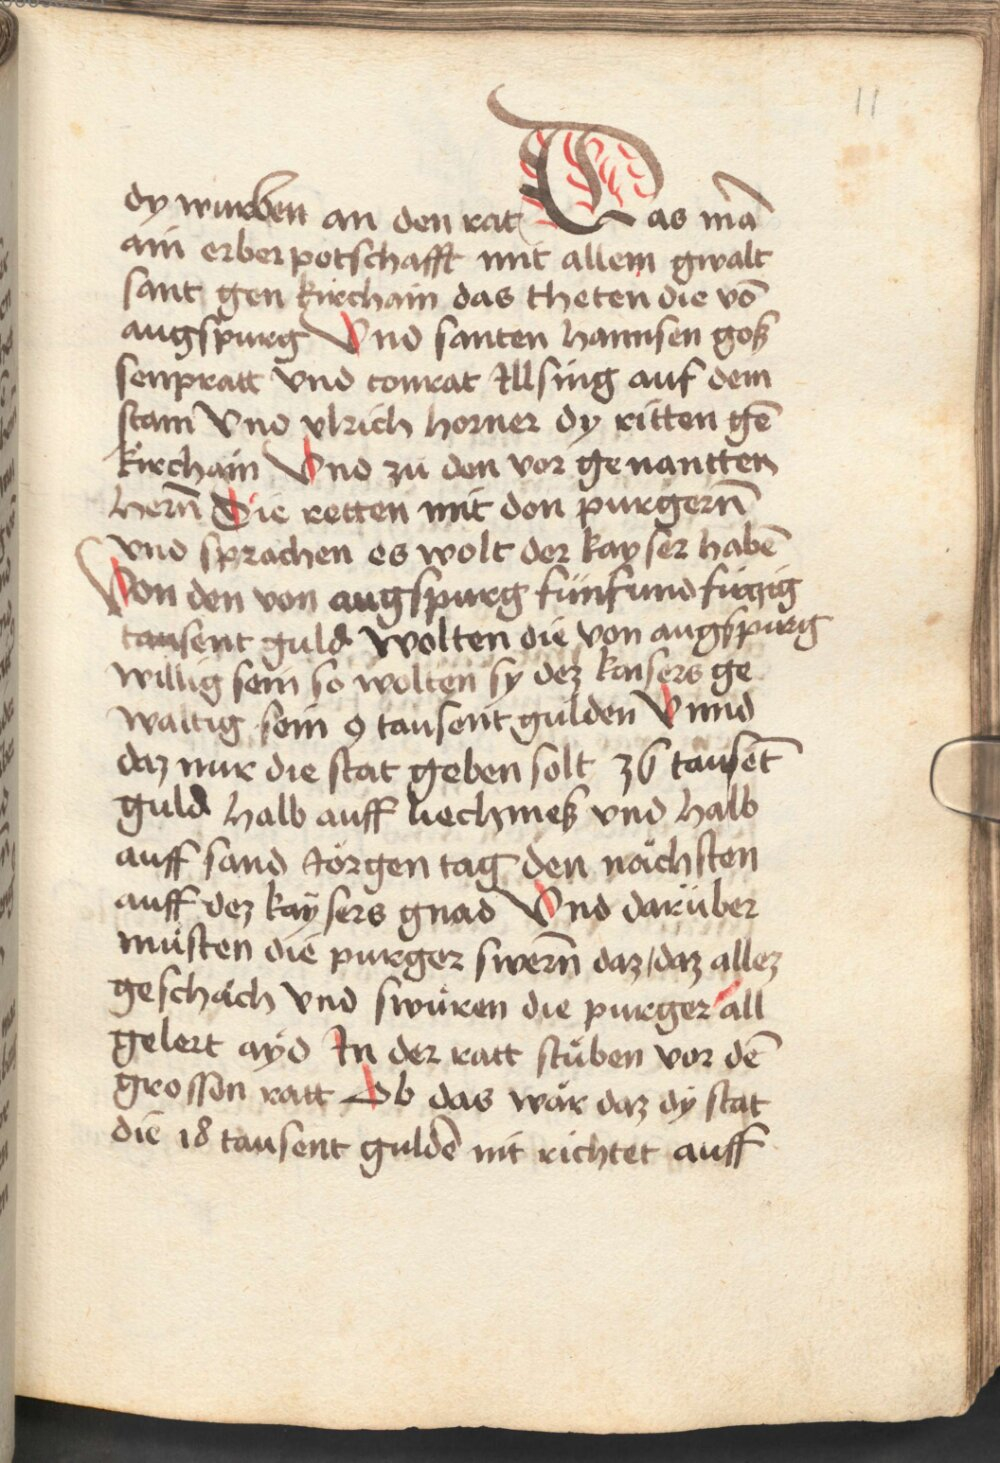 11
dy wurben an den rat Das mā
ain erber potschafft mit allem gwalt
sant gen kirchain das theten die vō
augspurg Vnd santen hannsen goß
senpratt vnd conrat Illsing auf dem
stain Vnd vlrich horner dy ritten gē
kirchain Vnd zü den vor genantten
hern̄ Die retten mit den purgern̄
vnd sprachen es wolt der kayser habē
Von den von augspurg fünfundfirtzig
tausent guld wolten die von augspurg
willig sein so wolten sy dez kaisers ge
waltig sein 9 tausent gulden Vnnd
daz nur die stat geben solt 36 tausēt
guld halb auff liechmeß vnd halb
auff sand Jörgen tag den nächsten
auff dez kaÿsers gnad Vnd darüber
müsten die purger swern̄ daz/daz allez
geschäch vnd swüren die purger all
gelert aÿd In der ratt stüben vor dē
grossen ratt Ob das wär daz dÿ stat
die 18 tausent guldē nit richtet auff